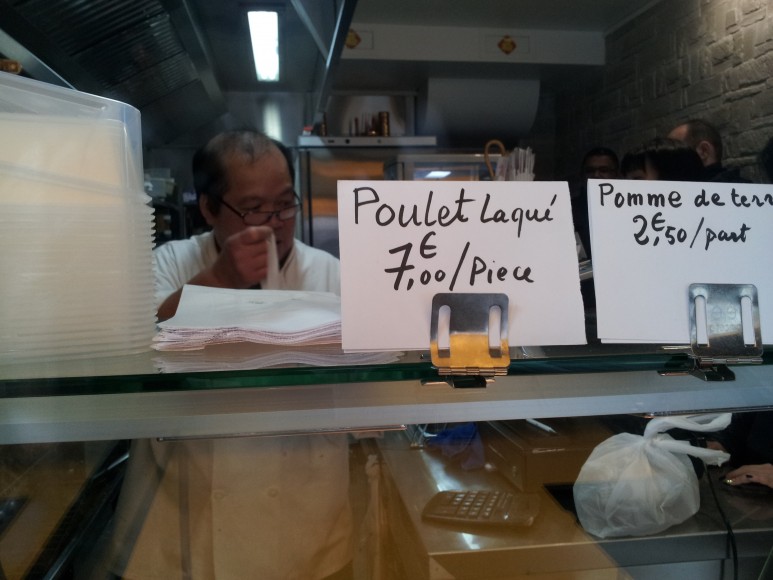 Poulet Laqué
7,00€/Piece
Pomme de terr
2€,50/part